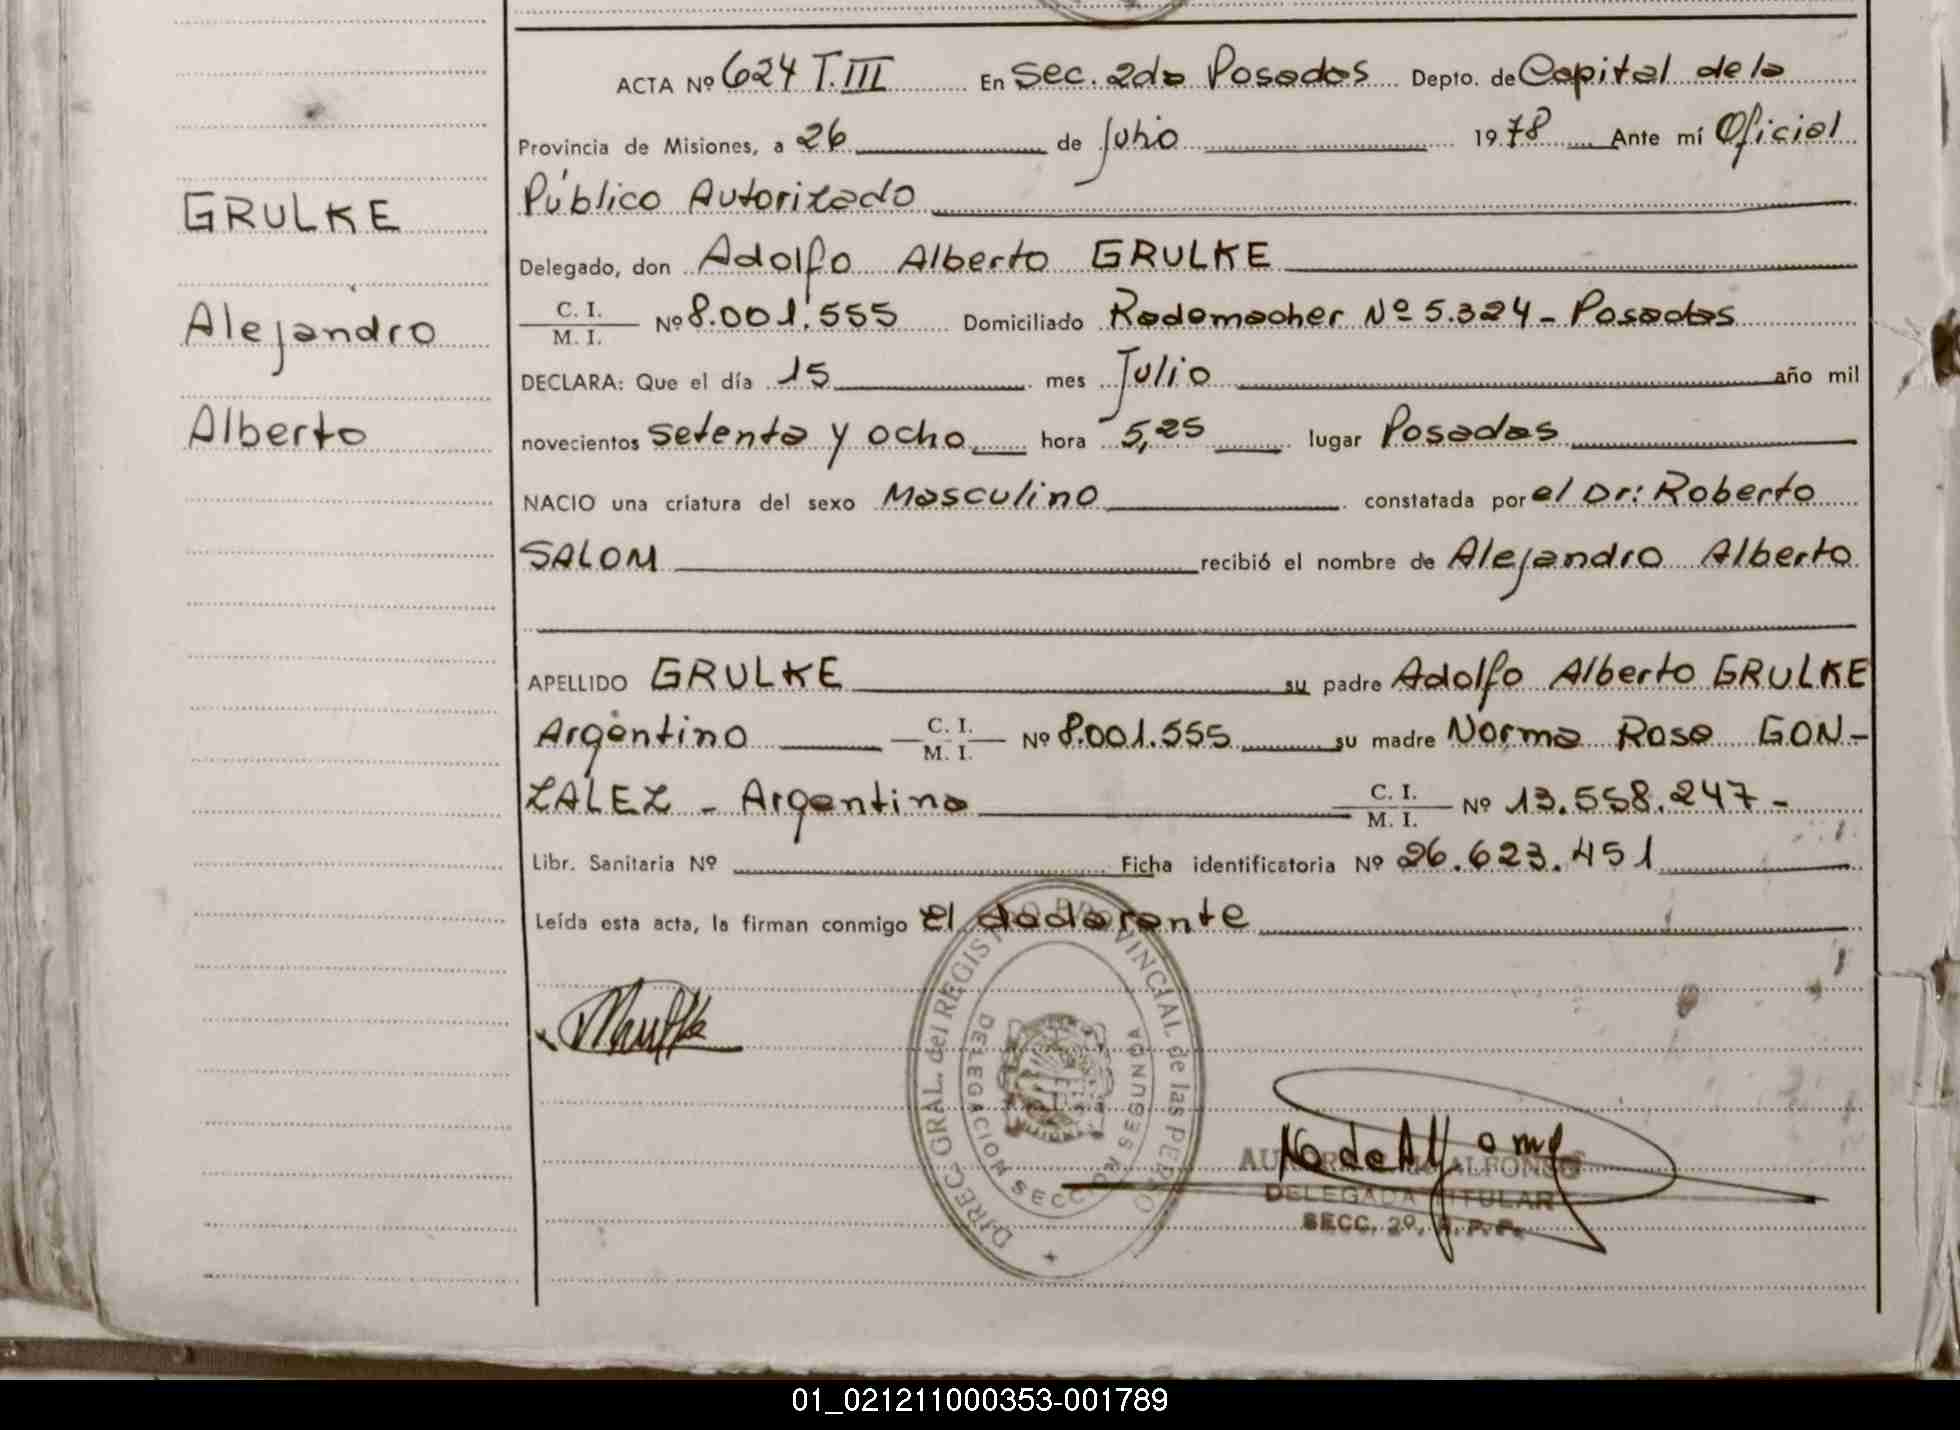 ACTA Nº 624 T.III En Sec. 2da Posadas Depto. de Capital de la
Provincia de Misiones, a 26 de Julio 1978 Ante mí Oficial
Público Autorizado
GRULKE
Delegado, don Adolfo Alberto GRULKE
C. I.
M. I.
Nº 8.001.555 Domiciliado Rademacher Nº 5.324 - Posadas
Alejandro
DECLARA: Que el día 15 mes Julio año mil
Alberto
novecientos setenta y ocho hora 5,25 lugar Posadas
NACIO una criatura del sexo Masculino constatada por el Dr: Roberto
SALOM recibió el nombre de Alejandro Alberto
APELLIDO GRULKE su padre Adolfo Alberto GRULKE
Argentino C. I. M. I. Nº 8.001.555 su madre Norma Rosa GON-
ZALEZ - Argentina C. I. M. I. Nº 13.558.247-
Libr. Sanitaria Nº Ficha identificatoria Nº 26.623.451
Leída esta acta, la firman conmigo El
DIREC. GRAL. del REGISTRO PROVINCIAL de las PERSO
DELEGACION SECCION SEGUNDA
ALFONSO
DELEGADA TITULAR
SECC. 2º, R.P.P.
01_021211000353-001789